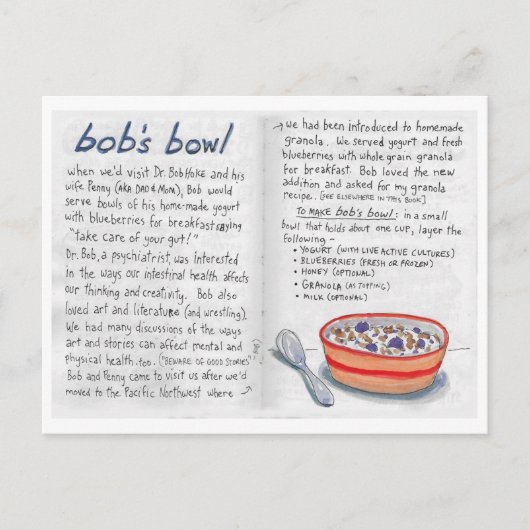 bob's bowl
when we'd visit Dr. Bob Hoke and his
wife Penny (AKA DAD & MOM), Bob would
serve bowls of his home-made yogurt
with blueberries for breakfast saying
"take care of your gut!"
Dr. Bob, a psychiatrist, was interested
in the ways our intestinal health affects
our thinking and creativity. Bob also
loved art and literature (and wrestling).
We had many discussions of the ways
art and stories can affect mental and
physical health too. ("BEWARE OF GOOD STORIES"
Bob and Penny came to visit us after we'd
moved to the Pacific Northwest where →
→ we had been introduced to homemade
granola. We served yogurt and fresh
blueberries with whole grain granola
for breakfast. Bob loved the new
addition and asked for my granola
recipe. [SEE ELSEWHERE IN THIS BOOK]
TO MAKE bob's bowl: in a small
bowl that holds about one cup, layer the
following ~
• YOGURT (WITH LIVE ACTIVE CULTURES)
• BLUEBERRIES (FRESH OR FROZEN)
• HONEY (OPTIONAL)
• GRANOLA (AS TOPPING)
• MILK (OPTIONAL)